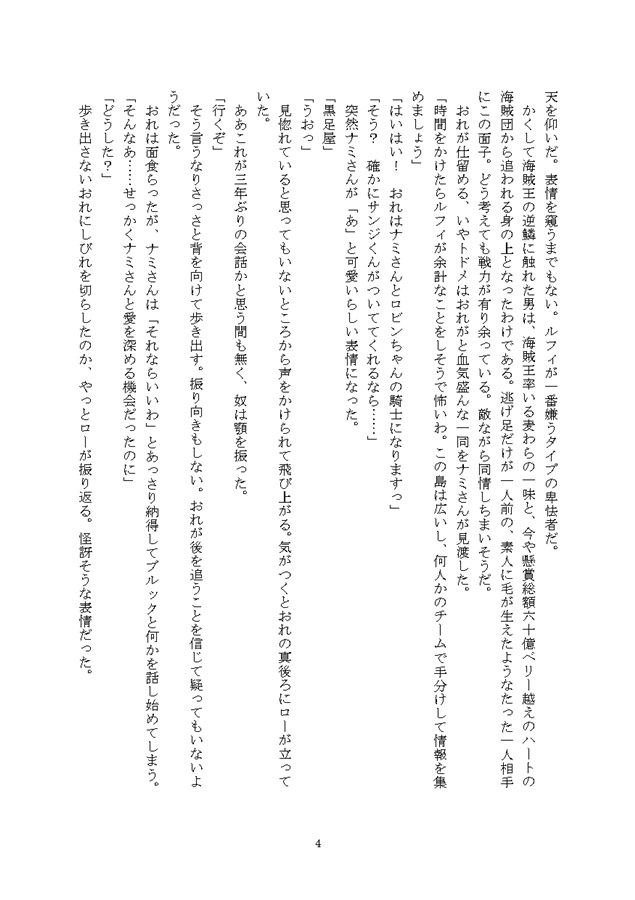 天を仰いだ。表情を窺うまでもない。ルフィが一番嫌うタイプの卑怯者だ。
　かくして海賊王の逆鱗に触れた男は、海賊王率いる麦わらの一味と、今や懸賞総額六十億ベリー越えのハートの
海賊団から追われる身の上となったわけである。逃げ足だけが一人前の、素人に毛が生えたようなたった一人相手
にこの面子。どう考えても戦力が有り余っている。敵ながら同情しちまいそうだ。
　おれが仕留める、いやトドメはおれがと血気盛んな一同をナミさんが見渡した。
「時間をかけたらルフィが余計なことをしそうで怖いわ。この島は広いし、何人かのチームで手分けして情報を集
めましょう」
「はいはい！　おれはナミさんとロビンちゃんの騎士になりますっ」
「そう？　確かにサンジくんがついててくれるなら……」
　突然ナミさんが「あ」と可愛いらしい表情になった。
「黒足屋」
「うおっ」
　見惚れていると思ってもいないところから声をかけられて飛び上がる。気がつくとおれの真後ろにローが立って
いた。
　ああこれが三年ぶりの会話かと思う間も無く、奴は顎を振った。
「行くぞ」
　そう言うなりさっさと背を向けて歩き出す。振り向きもしない。おれが後を追うことを信じて疑ってもいないよ
うだった。
　おれは面食らったが、ナミさんは「それならいいわ」とあっさり納得してブルックと何かを話し始めてしまう。
「そんなあ……せっかくナミさんと愛を深める機会だったのに」
「どうした？」
　歩き出さないおれにしびれを切らしたのか、やっとローが振り返る。怪訝そうな表情だった。
4